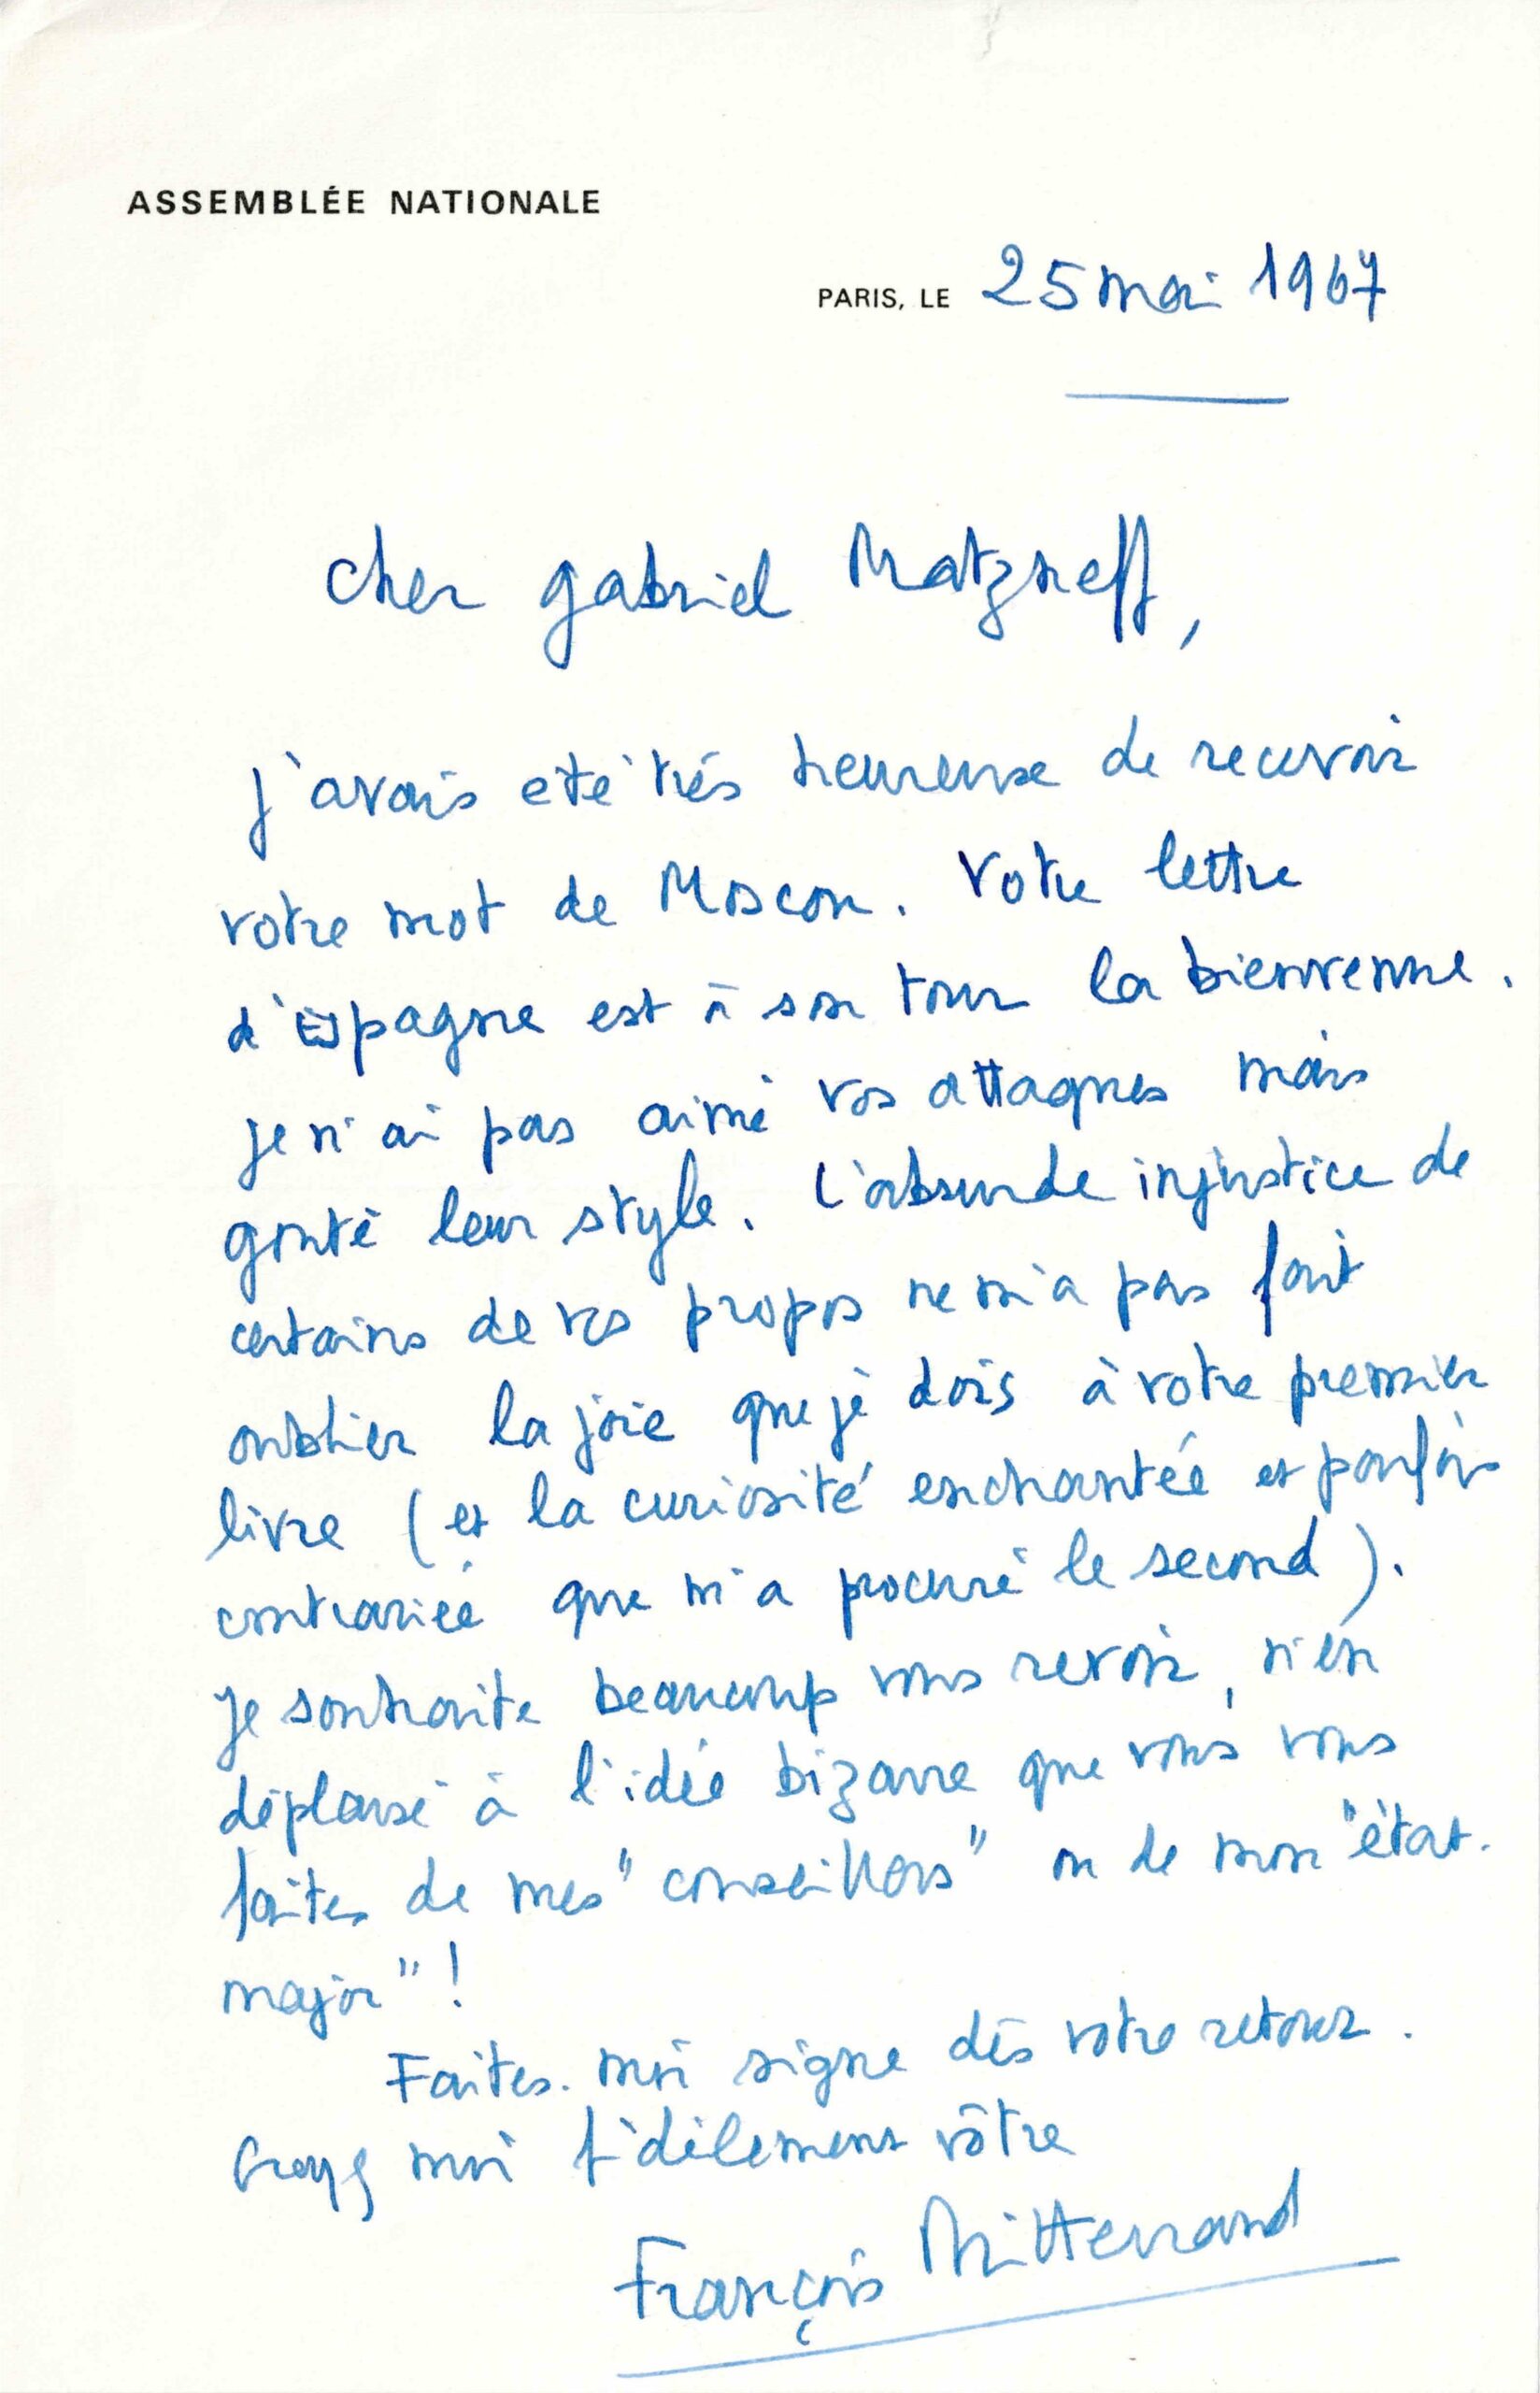 ASSEMBLÉE NATIONALE
PARIS, LE 25 mai 1967
Cher Gabriel Matzneff,
J'avais été très heureux de recevoir
votre mot de Moscou. Votre lettre
d'Espagne est à son tour la bienvenue.
Je n'ai pas aimé vos attaques mais
goûté leur style. L'absurde injustice de
certains de vos propos ne m'a pas fait
oublier la joie que je dois à votre premier
livre (et la curiosité enchantée et parfois
contrariée que m'a procuré le second).
Je souhaite beaucoup vous revoir, n'en
déplaise à l'idée bizarre que vous vous
faites de mes "conseillers" ou de mon "état-
major"!
Faites-moi signe dès votre retour.
Croyez moi fidèlement vôtre
François Mitterrand